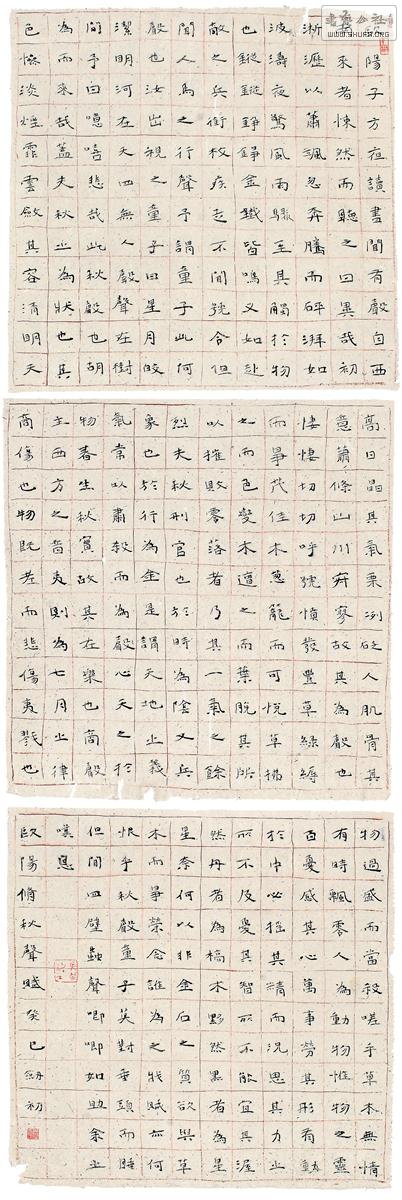 陽子方夜讀書聞有聲自西
來者悚然而聽之曰異哉初
淅瀝以蕭颯忽奔騰而砰湃如
波濤夜驚風雨驟至其觸於物
也鏦鏦錚錚金鐵皆鳴又如赴
敵之兵銜枚疾走不聞號令但
聞人馬之行聲予謂童子此何
聲也汝出視之童子曰星月皎
潔明河在天四無人聲聲在樹
間予曰噫嘻悲哉此秋聲也胡
為而來哉蓋夫秋之為狀也其
色慘淡煙霏雲斂其容清明天
高日晶其氣栗冽砭人肌骨其
意蕭條山川寂寥故其為聲也
悽悽切切呼號憤發豐草綠縟
而爭茂佳木蔥蘢而可悅草拂
之而色變木遭之而葉脫其所
以摧敗零落者乃其一氣之餘
烈夫秋刑官也於時為陰又兵
象也於行為金是謂天地之義
氣常以肅殺而為聲心天之於
物春生秋實故其在樂也商聲
主西方之音夷則為七月之律
商傷也物既老而悲傷夷戮也
物過盛而當殺嗟乎草木無情
有時飄零人為動物惟物之靈
百憂感其心萬事勞其形有動
於中必搖其精而況思其力之
所不及憂其智所不能宜其渥
然丹者為槁木黟然黑者為星
星奈何以非金石之質欲與草
木而爭榮念誰為之戕賊亦何
恨乎秋聲童子莫對垂頭而睡
但聞四壁蟲聲唧唧如助余之
嘆息
歐陽脩秋聲賦癸巳初
WWW.SHUFA.ORG